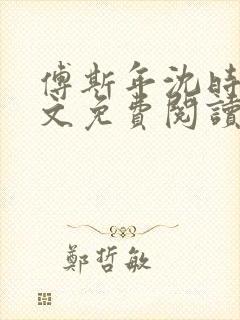 傅斯年沈時
文免費閱讀
鄭哲敏